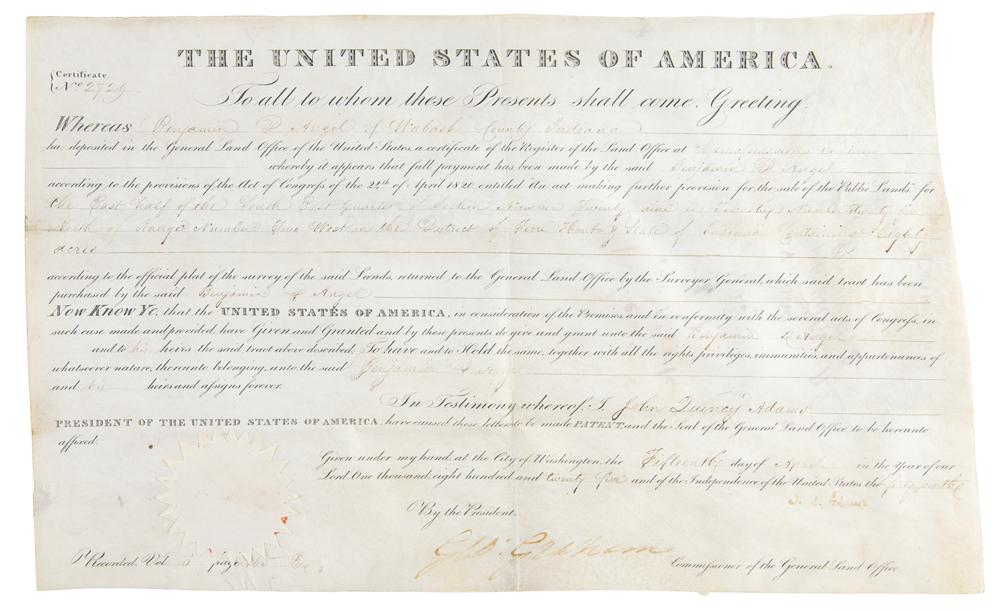 THE UNITED STATES OF AMERICA.
Certificate.
No. 2729
To all to whom these Presents shall come, Greeting.
Whereas Benjamin D Angel of Wabash County Indiana
ha deposited in the General Land Office of the United States, a certificate of the Register of the Land Office at
whereby it appears that full payment has been made by the said Benjamin D Angel
according to the provisions of the Act of Congress of the 24th of April 1820, entitled "An act making further provision for the sale of the Public Lands" for
the East half of the South East Quarter of Section Number Twenty nine in Township Number Twenty
North of Range Number Two West in the District of Terre Haute & State of Indiana Containing Eighty
acres
according to the official plat of the survey of the said Lands, returned to the General Land Office by the Surveyor General, which said tract has been
purchased by the said Benjamin D Angel
Now Know Ye, that the UNITED STATES OF AMERICA, in consideration of the Premises, and in conformity with the several acts of Congress, in
such case made and provided, have Given and Granted and by these presents do give and grant unto the said Benjamin D Angel
and to his heirs the said tract above described; To have and to Hold the same, together with all the rights, privileges, immunities, and appurtenances of
whatsoever nature, thereunto belonging, unto the said Benjamin D Angel
and his heirs and assigns forever.
In Testimony whereof, I, John Quincy Adams
PRESIDENT OF THE UNITED STATES OF AMERICA, have caused these letters to be made PATENT, and the Seal of the General Land Office to be hereunto
affixed.
Given under my hand, at the City of Washington, the Fifteenth day of April in the Year of our
Lord One thousand, eight hundred and twenty and of the Independence of the United States the
J. Q. Adams
By the President.
Geo: Graham
Commissioner of the General Land Office.
Recorded, Vol. page